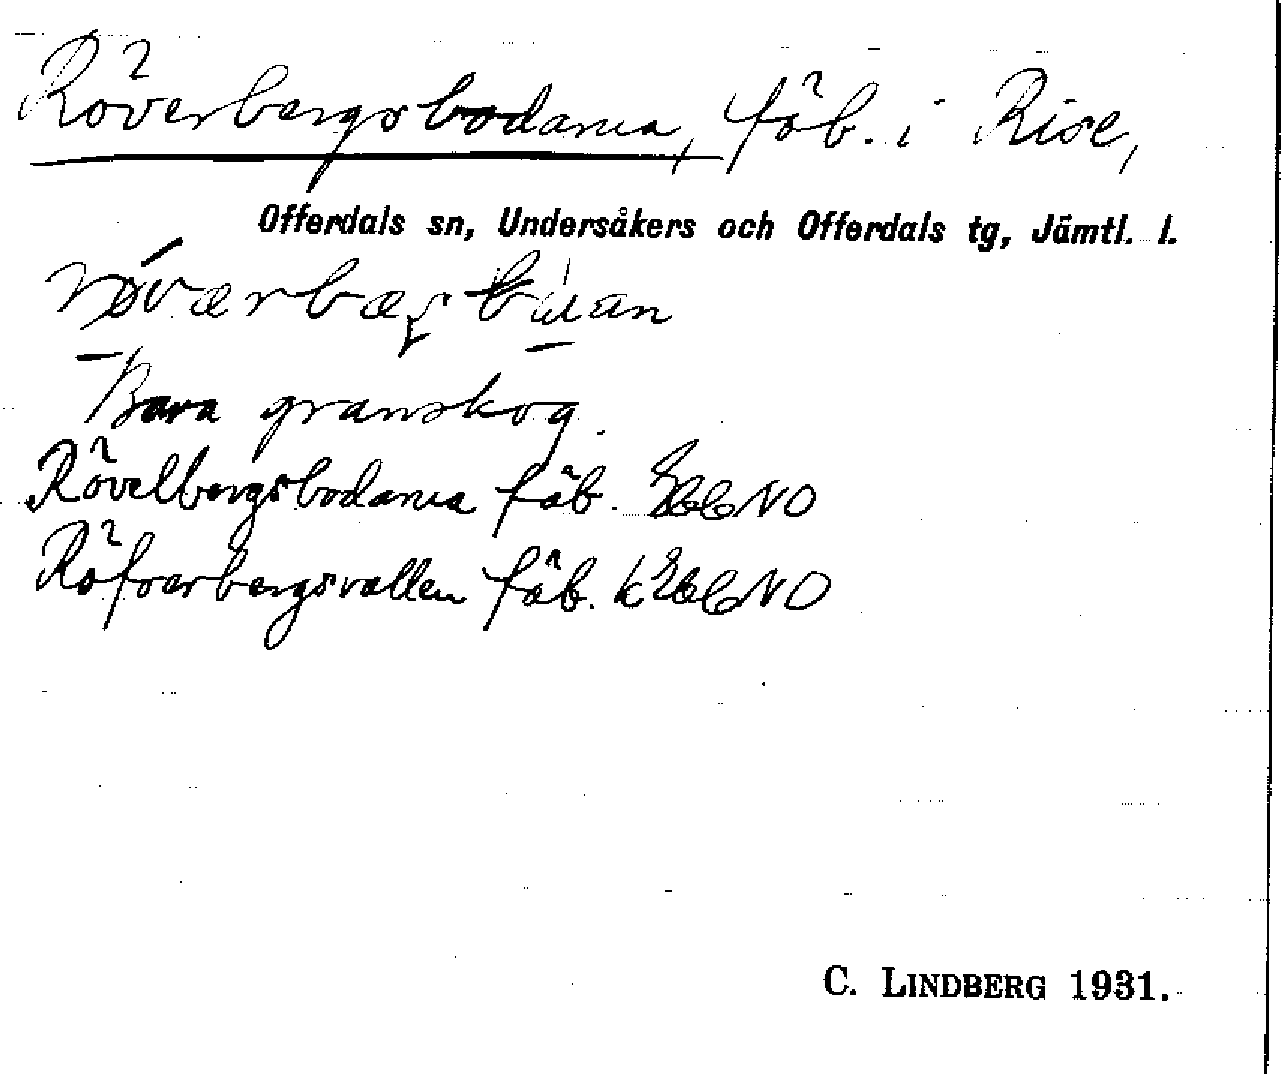 Röverbergsbodarna, fäb. i Rise,
Offerdals sn, Undersåkers och Offerdals tg, Jämtl. l.
Bara granskog.
Rövelbergsbodarna fäb. NO
Röfverbergsvallen fäb. NO
C. LINDBERG 1931.